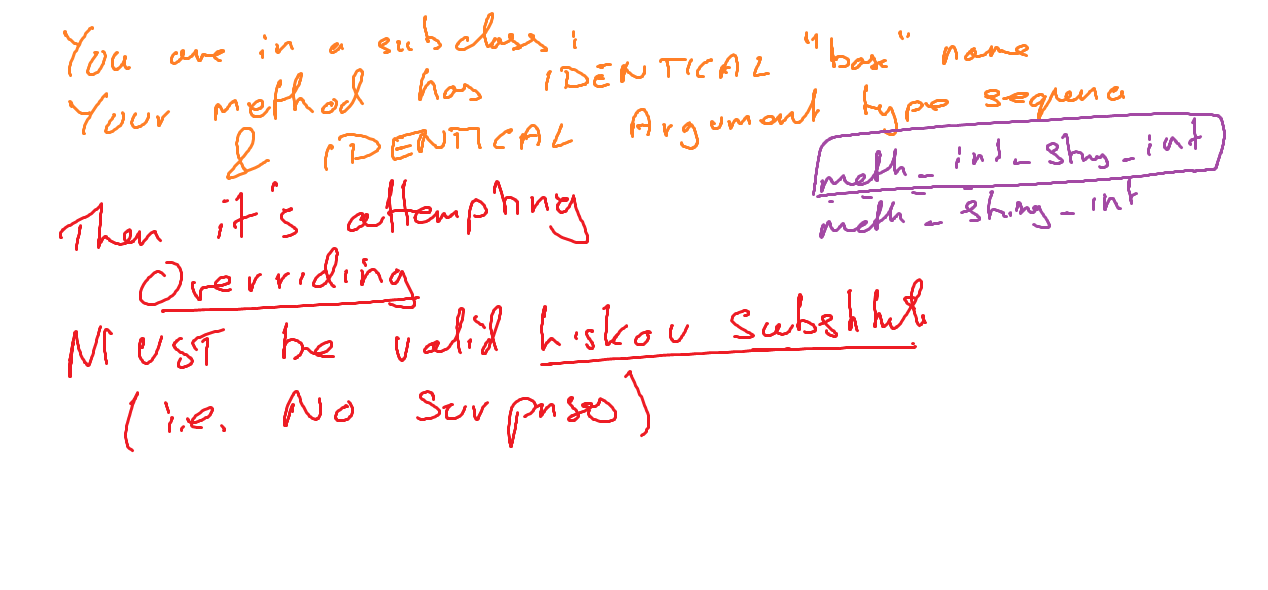 You are in a subclass:
Your method has IDENTICAL "base" name
& IDENTICAL Argument type sequence
meth_int_string_int
meth_string_int
Then it's attempting
Overriding
MUST be valid Liskov substitute
(i.e. No surprises)